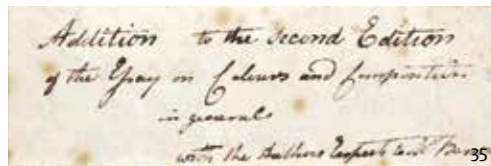 Addition to the Second Edition
of the Essay on Colours and Composition
in general
with the Authors
35